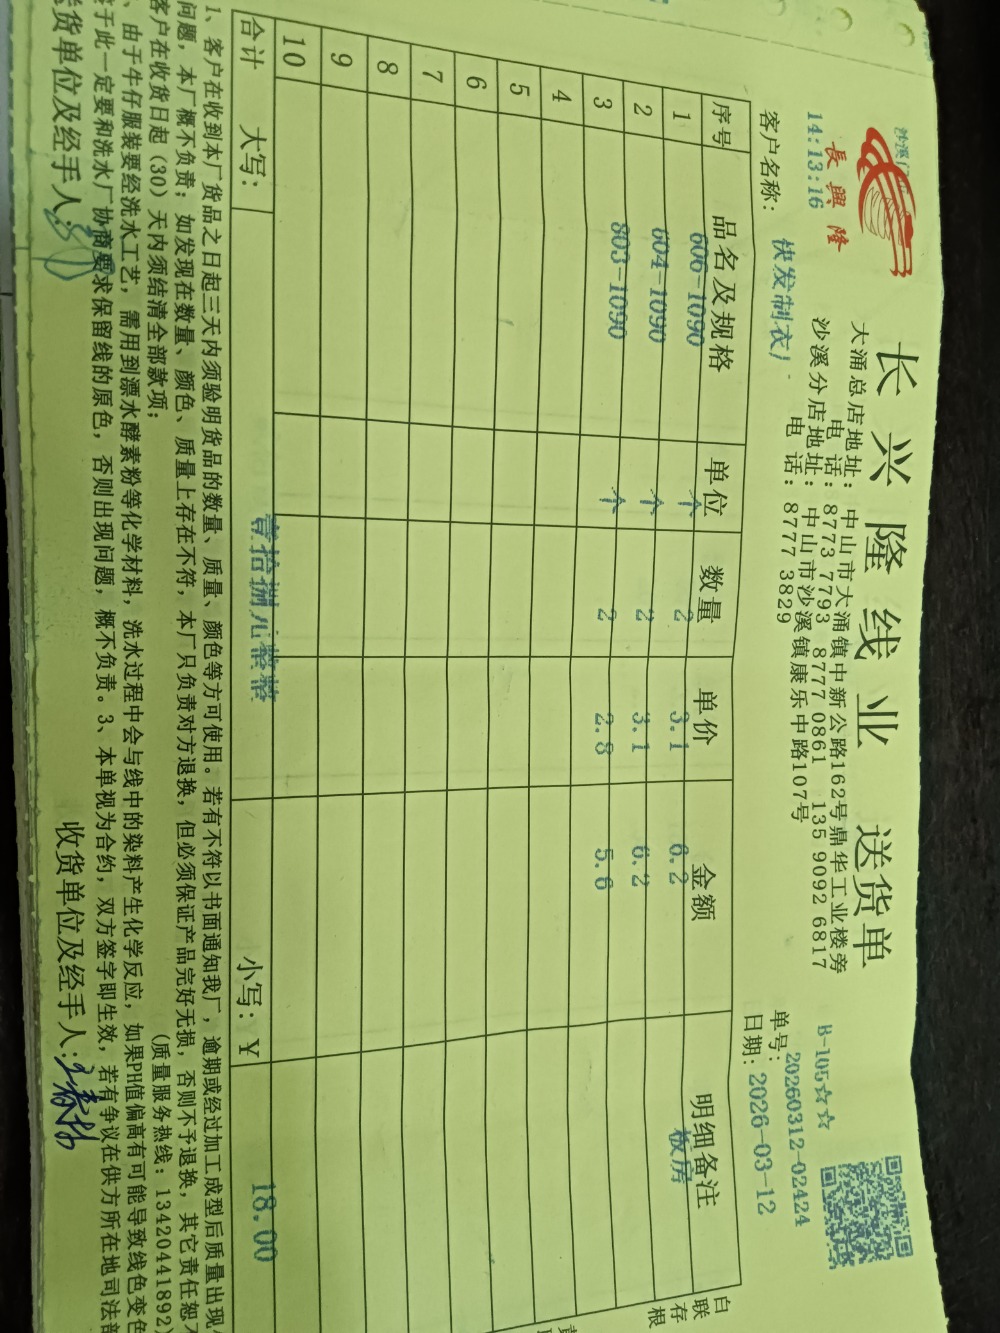 长兴隆线业 送货单
長興隆
大涌总店地址：中山市大涌镇中新公路162号鼎华工业楼旁
电 话：8773 7793 8777 0861 135 9092 6817
沙溪分店地址：中山市沙溪镇康乐中路107号
电 话：8777 3829
B-105☆☆
14:13:16
单号：20260312-02424
客户名称：快发制衣厂
日期：2026-03-12
序号 品名及规格 单位 数量 单价 金额 明细备注
1 606-1090 个 2 3.1 6.2 板房
2 604-1090 个 2 3.1 6.2
3 803-1090 个 2 2.8 5.6
4
5
6
7
8
9
10
合计 大写： 壹拾捌元整整 小写：￥ 18.00
白联存根
1、客户在收到本厂货品之日起三天内须验明货品的数量、质量、颜色等方可使用。若有不符以书面通知我厂，逾期或经过加工成型后质量出现
问题，本厂概不负责；如发现在数量、颜色、质量上存在不符，本厂只负责对方退换，但必须保证产品完好无损，否则不予退换，其它责任恕
客户在收货日起（30）天内须结清全部款项； (质量服务热线：13420441892)
、由于牛仔服装要经洗水工艺，需用到漂水酵素粉等化学材料，洗水过程中会与线中的染料产生化学反应，如果PH值偏高有可能导致线色变色
于此一定要和洗水厂协商要求保留线的原色，否则出现问题，概不负责。3、本单视为合约，双方签字即生效，若有争议在供方所在地司法
货单位及经手人： 收货单位及经手人：